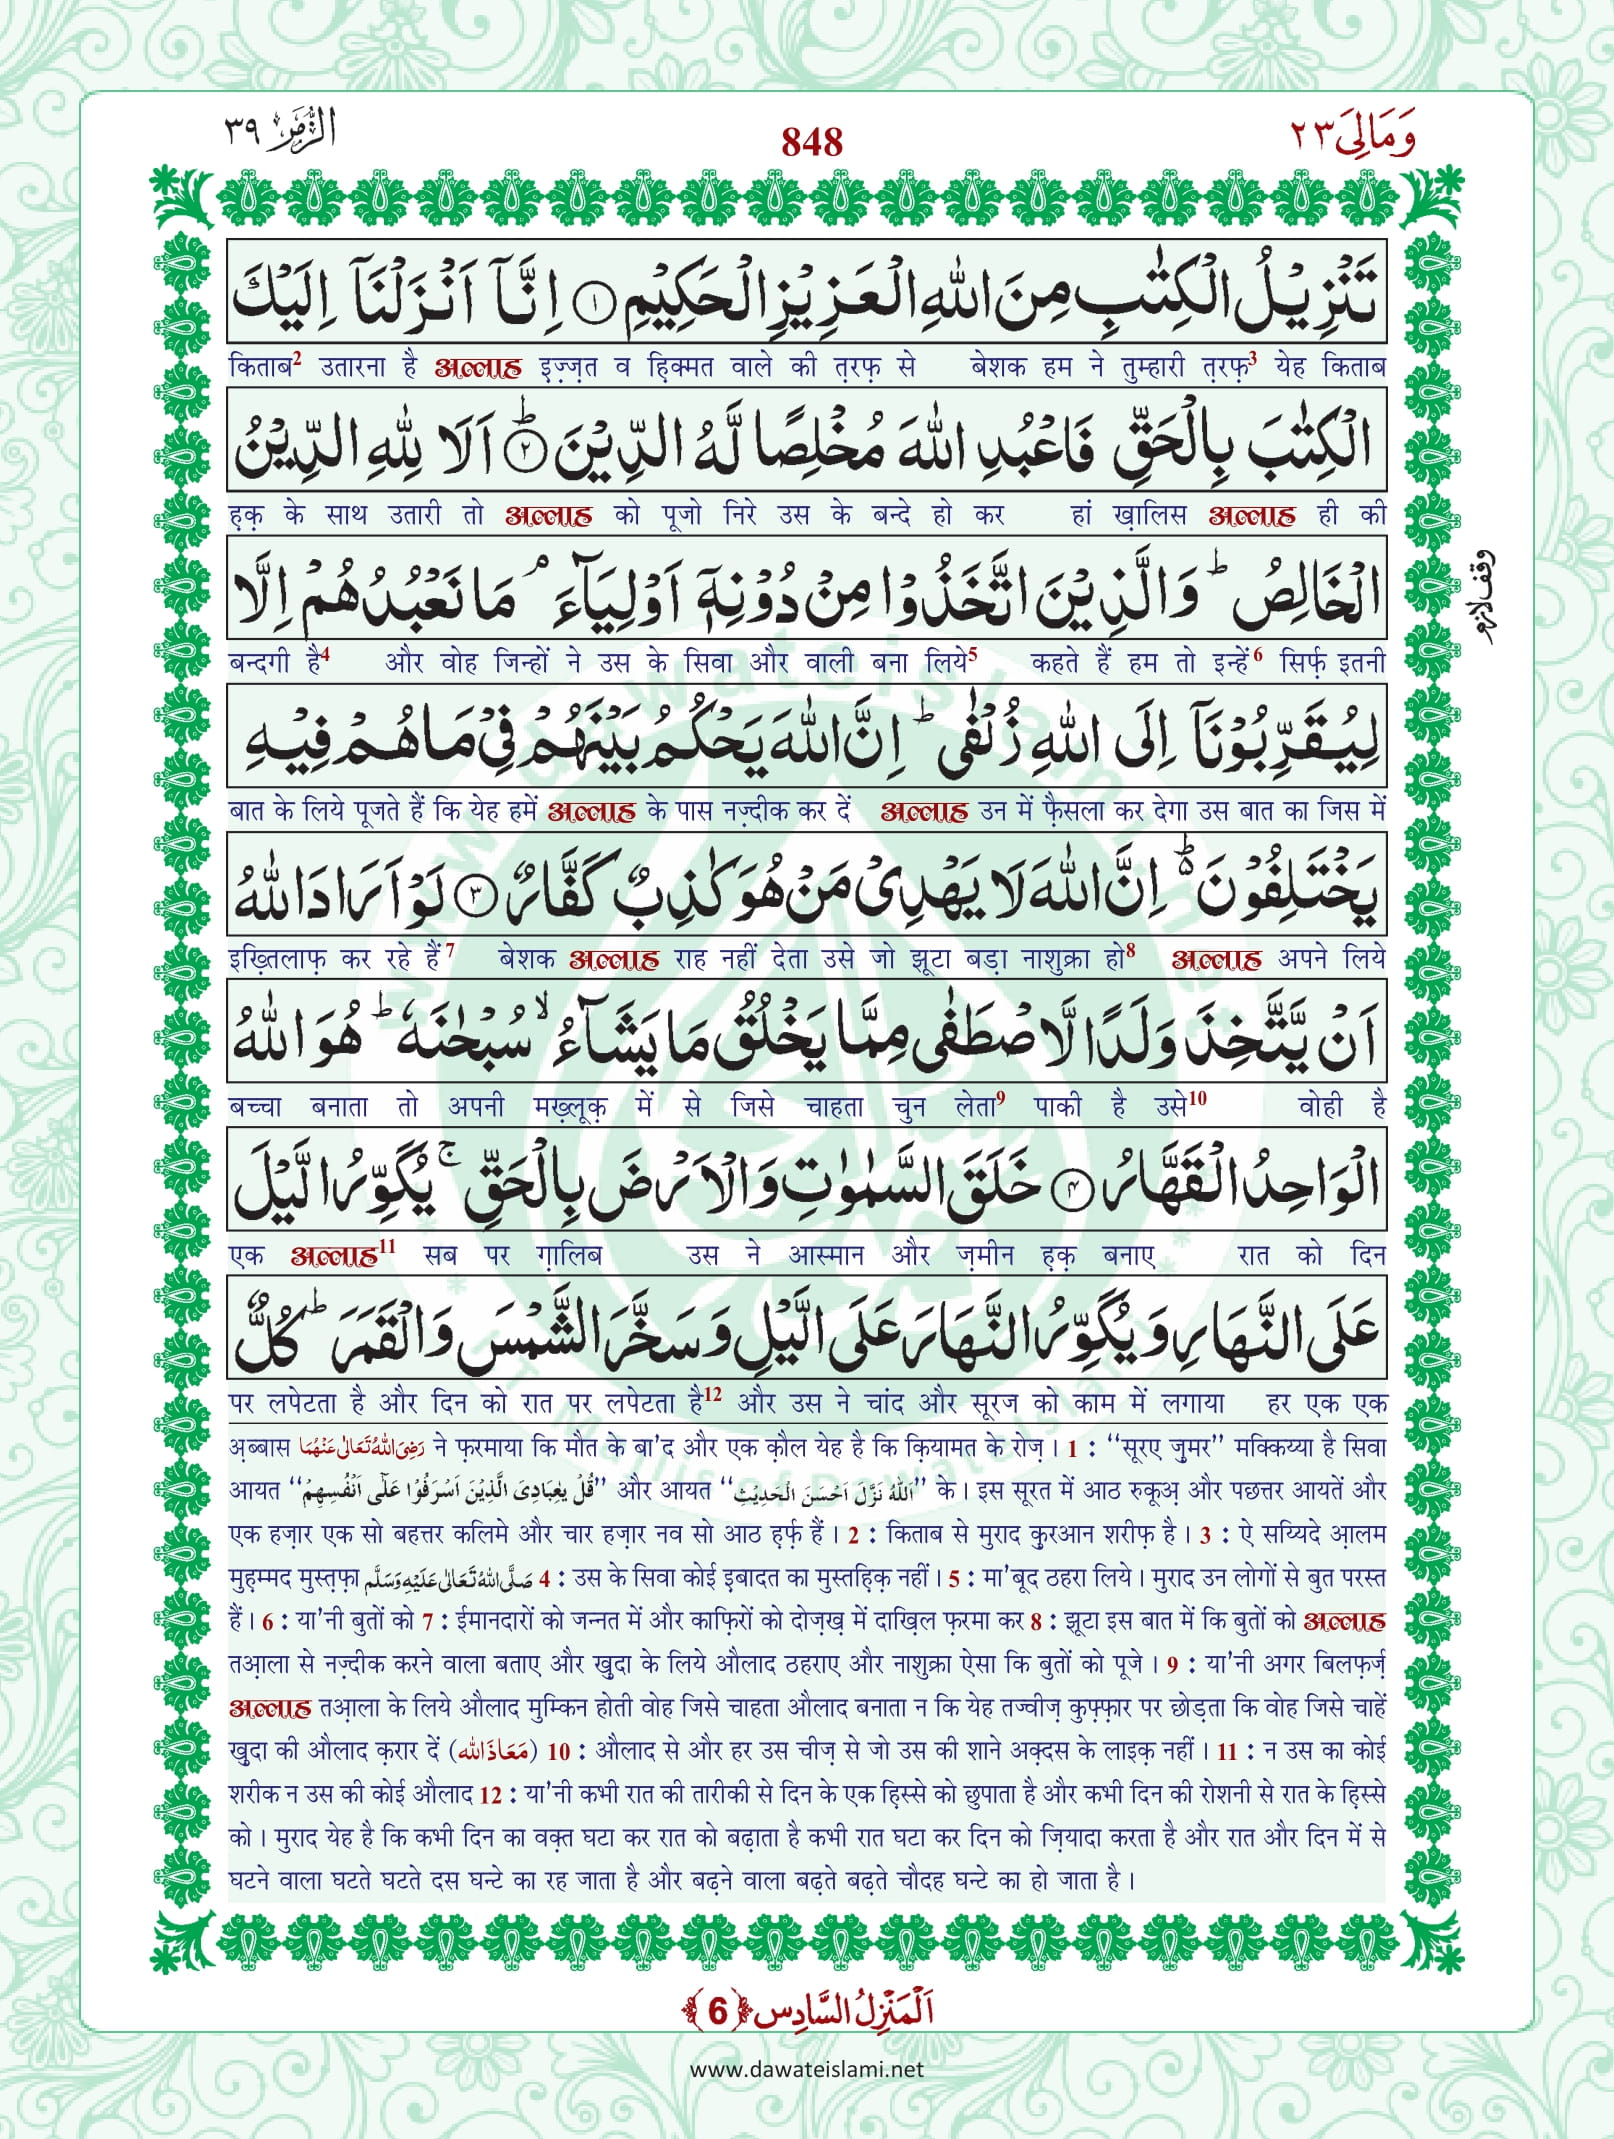 وَمَالِیَ ٢٣
848
الزُّمَر ٣٩
تَنْزِیْلُ الْكِتٰبِ مِنَ اللّٰهِ الْعَزِیْزِ الْحَكِیْمِ ﴿١﴾ اِنَّاۤ اَنْزَلْنَاۤ اِلَیْكَ
किताब2 उतारना है अल्लाह इ़ज़्ज़त व ह़िक्मत वाले की त़रफ़ से बेशक हम ने तुम्हारी त़रफ़3 येह किताब
الْكِتٰبَ بِالْحَقِّ فَاعْبُدِ اللّٰهَ مُخْلِصًا لَّهُ الدِّیْنَ ﴿٢﴾ؕ اَلَا لِلّٰهِ الدِّیْنُ
ह़क़ के साथ उतारी तो अल्लाह को पूजो निरे उस के बन्दे हो कर हां ख़ालिस अल्लाह ही की
الْخَالِصُ ؕ وَالَّذِیْنَ اتَّخَذُوْا مِنْ دُوْنِهٖۤ اَوْلِیَآءَ ۘ مَا نَعْبُدُهُمْ اِلَّا
وقف لازم
बन्दगी है4 और वोह जिन्हों ने उस के सिवा और वाली बना लिये5 कहते हैं हम तो इन्हें6 सिर्फ़ इतनी
لِیُقَرِّبُوْنَاۤ اِلَى اللّٰهِ زُلْفٰى ؕ اِنَّ اللّٰهَ یَحْكُمُ بَیْنَهُمْ فِیْ مَا هُمْ فِیْهِ
बात के लिये पूजते हैं कि येह हमें अल्लाह के पास नज़्दीक कर दें अल्लाह उन में फ़ैसला कर देगा उस बात का जिस में
یَخْتَلِفُوْنَ ؕ۬ اِنَّ اللّٰهَ لَا یَهْدِیْ مَنْ هُوَ كٰذِبٌ كَفَّارٌ ﴿٣﴾ لَوْ اَرَادَ اللّٰهُ
इख़्तिलाफ़ कर रहे हैं7 बेशक अल्लाह राह नहीं देता उसे जो झूटा बड़ा नाशुक्रा हो8 अल्लाह अपने लिये
اَنْ یَّتَّخِذَ وَلَدًا لَّاصْطَفٰى مِمَّا یَخْلُقُ مَا یَشَآءُ ۙ سُبْحٰنَهٗ ؕ هُوَ اللّٰهُ
बच्चा बनाता तो अपनी मख़्लूक़ में से जिसे चाहता चुन लेता9 पाकी है उसे10 वोही है
الْوَاحِدُ الْقَهَّارُ ﴿٤﴾ خَلَقَ السَّمٰوٰتِ وَالْاَرْضَ بِالْحَقِّ ۚ یُكَوِّرُ الَّیْلَ
एक अल्लाह11 सब पर ग़ालिब उस ने आस्मान और ज़मीन ह़क़ बनाए रात को दिन
عَلَى النَّهَارِ وَیُكَوِّرُ النَّهَارَ عَلَى الَّیْلِ وَسَخَّرَ الشَّمْسَ وَالْقَمَرَ ؕ كُلٌّ
पर लपेटता है और दिन को रात पर लपेटता है12 और उस ने चांद और सूरज को काम में लगाया हर एक एक
अ़ब्बास رَضِیَ اللّٰهُ تَعَالٰی عَنْهُمَا ने फ़रमाया कि मौत के बा'द और एक क़ौल येह है कि क़ियामत के रोज़। 1 : ''सूरए ज़ुमर'' मक्किय्या है सिवा
आयत ''قُلْ یٰعِبَادِیَ الَّذِیْنَ اَسْرَفُوْا عَلٰۤی اَنْفُسِهِمْ'' और आयत ''اَللّٰهُ نَزَّلَ اَحْسَنَ الْحَدِیْثِ'' के। इस सूरत में आठ रुकूअ़ और पछत्तर आयतें और
एक हज़ार एक सो बहत्तर कलिमे और चार हज़ार नव सो आठ ह़र्फ़ हैं। 2 : किताब से मुराद क़ुरआन शरीफ़ है। 3 : ऐ सय्यिदे आ़लम
मुह़म्मद मुस्त़फ़ा صَلَّی اللّٰهُ تَعَالٰی عَلَیْهِ وَسَلَّم 4 : उस के सिवा कोई इ़बादत का मुस्तह़िक़ नहीं। 5 : मा'बूद ठहरा लिये। मुराद उन लोगों से बुत परस्त
हैं। 6 : या'नी बुतों को 7 : ईमानदारों को जन्नत में और काफ़िरों को दोज़ख़ में दाख़िल फ़रमा कर 8 : झूटा इस बात में कि बुतों को अल्लाह
तआ़ला से नज़्दीक करने वाला बताए और ख़ुदा के लिये औलाद ठहराए और नाशुक्रा ऐसा कि बुतों को पूजे। 9 : या'नी अगर बिलफ़र्ज़
अल्लाह तआ़ला के लिये औलाद मुम्किन होती वोह जिसे चाहता औलाद बनाता न कि येह तज्वीज़ कुफ़्फ़ार पर छोड़ता कि वोह जिसे चाहें
ख़ुदा की औलाद क़रार दें (مَعَاذَ اللّٰه) 10 : औलाद से और हर उस चीज़ से जो उस की शाने अक़्दस के लाइक़ नहीं। 11 : न उस का कोई
शरीक न उस की कोई औलाद 12 : या'नी कभी रात की तारीकी से दिन के एक ह़िस्से को छुपाता है और कभी दिन की रोशनी से रात के ह़िस्से
को। मुराद येह है कि कभी दिन का वक़्त घटा कर रात को बढ़ाता है कभी रात घटा कर दिन को ज़ियादा करता है और रात और दिन में से
घटने वाला घटते घटते दस घन्टे का रह जाता है और बढ़ने वाला बढ़ते बढ़ते चौदह घन्टे का हो जाता है।
اَلْمَنْزِلُ السَّادِس ﴿6﴾
www.dawateislami.net